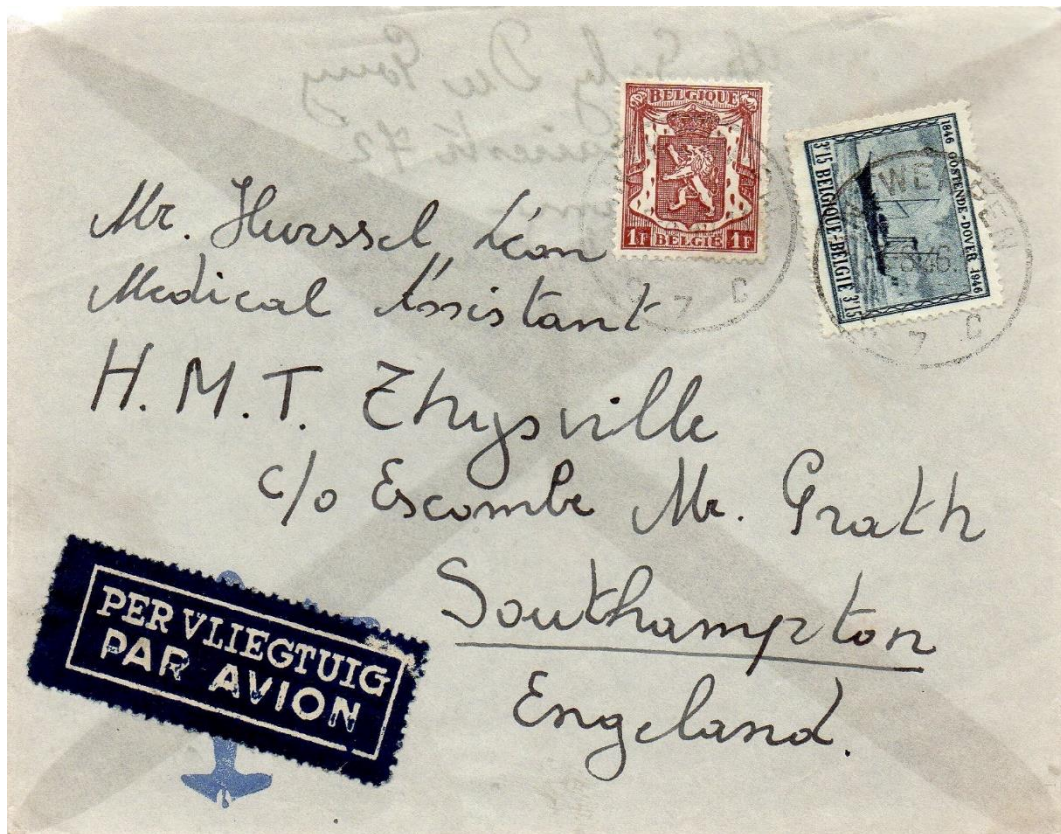 BELGIQUE
1F BELGIE 1F
1846 OOSTENDE-DOVER 1946
3F15 BELGIQUE-BELGIE 3F15
7 C
7 C
Mr. Hurssel Léon
Medical Assistant
H. M. T. Thysville
c/o Escombe Mc. Grath
Southampton
Engeland.
PER VLIEGTUIG
PAR AVION